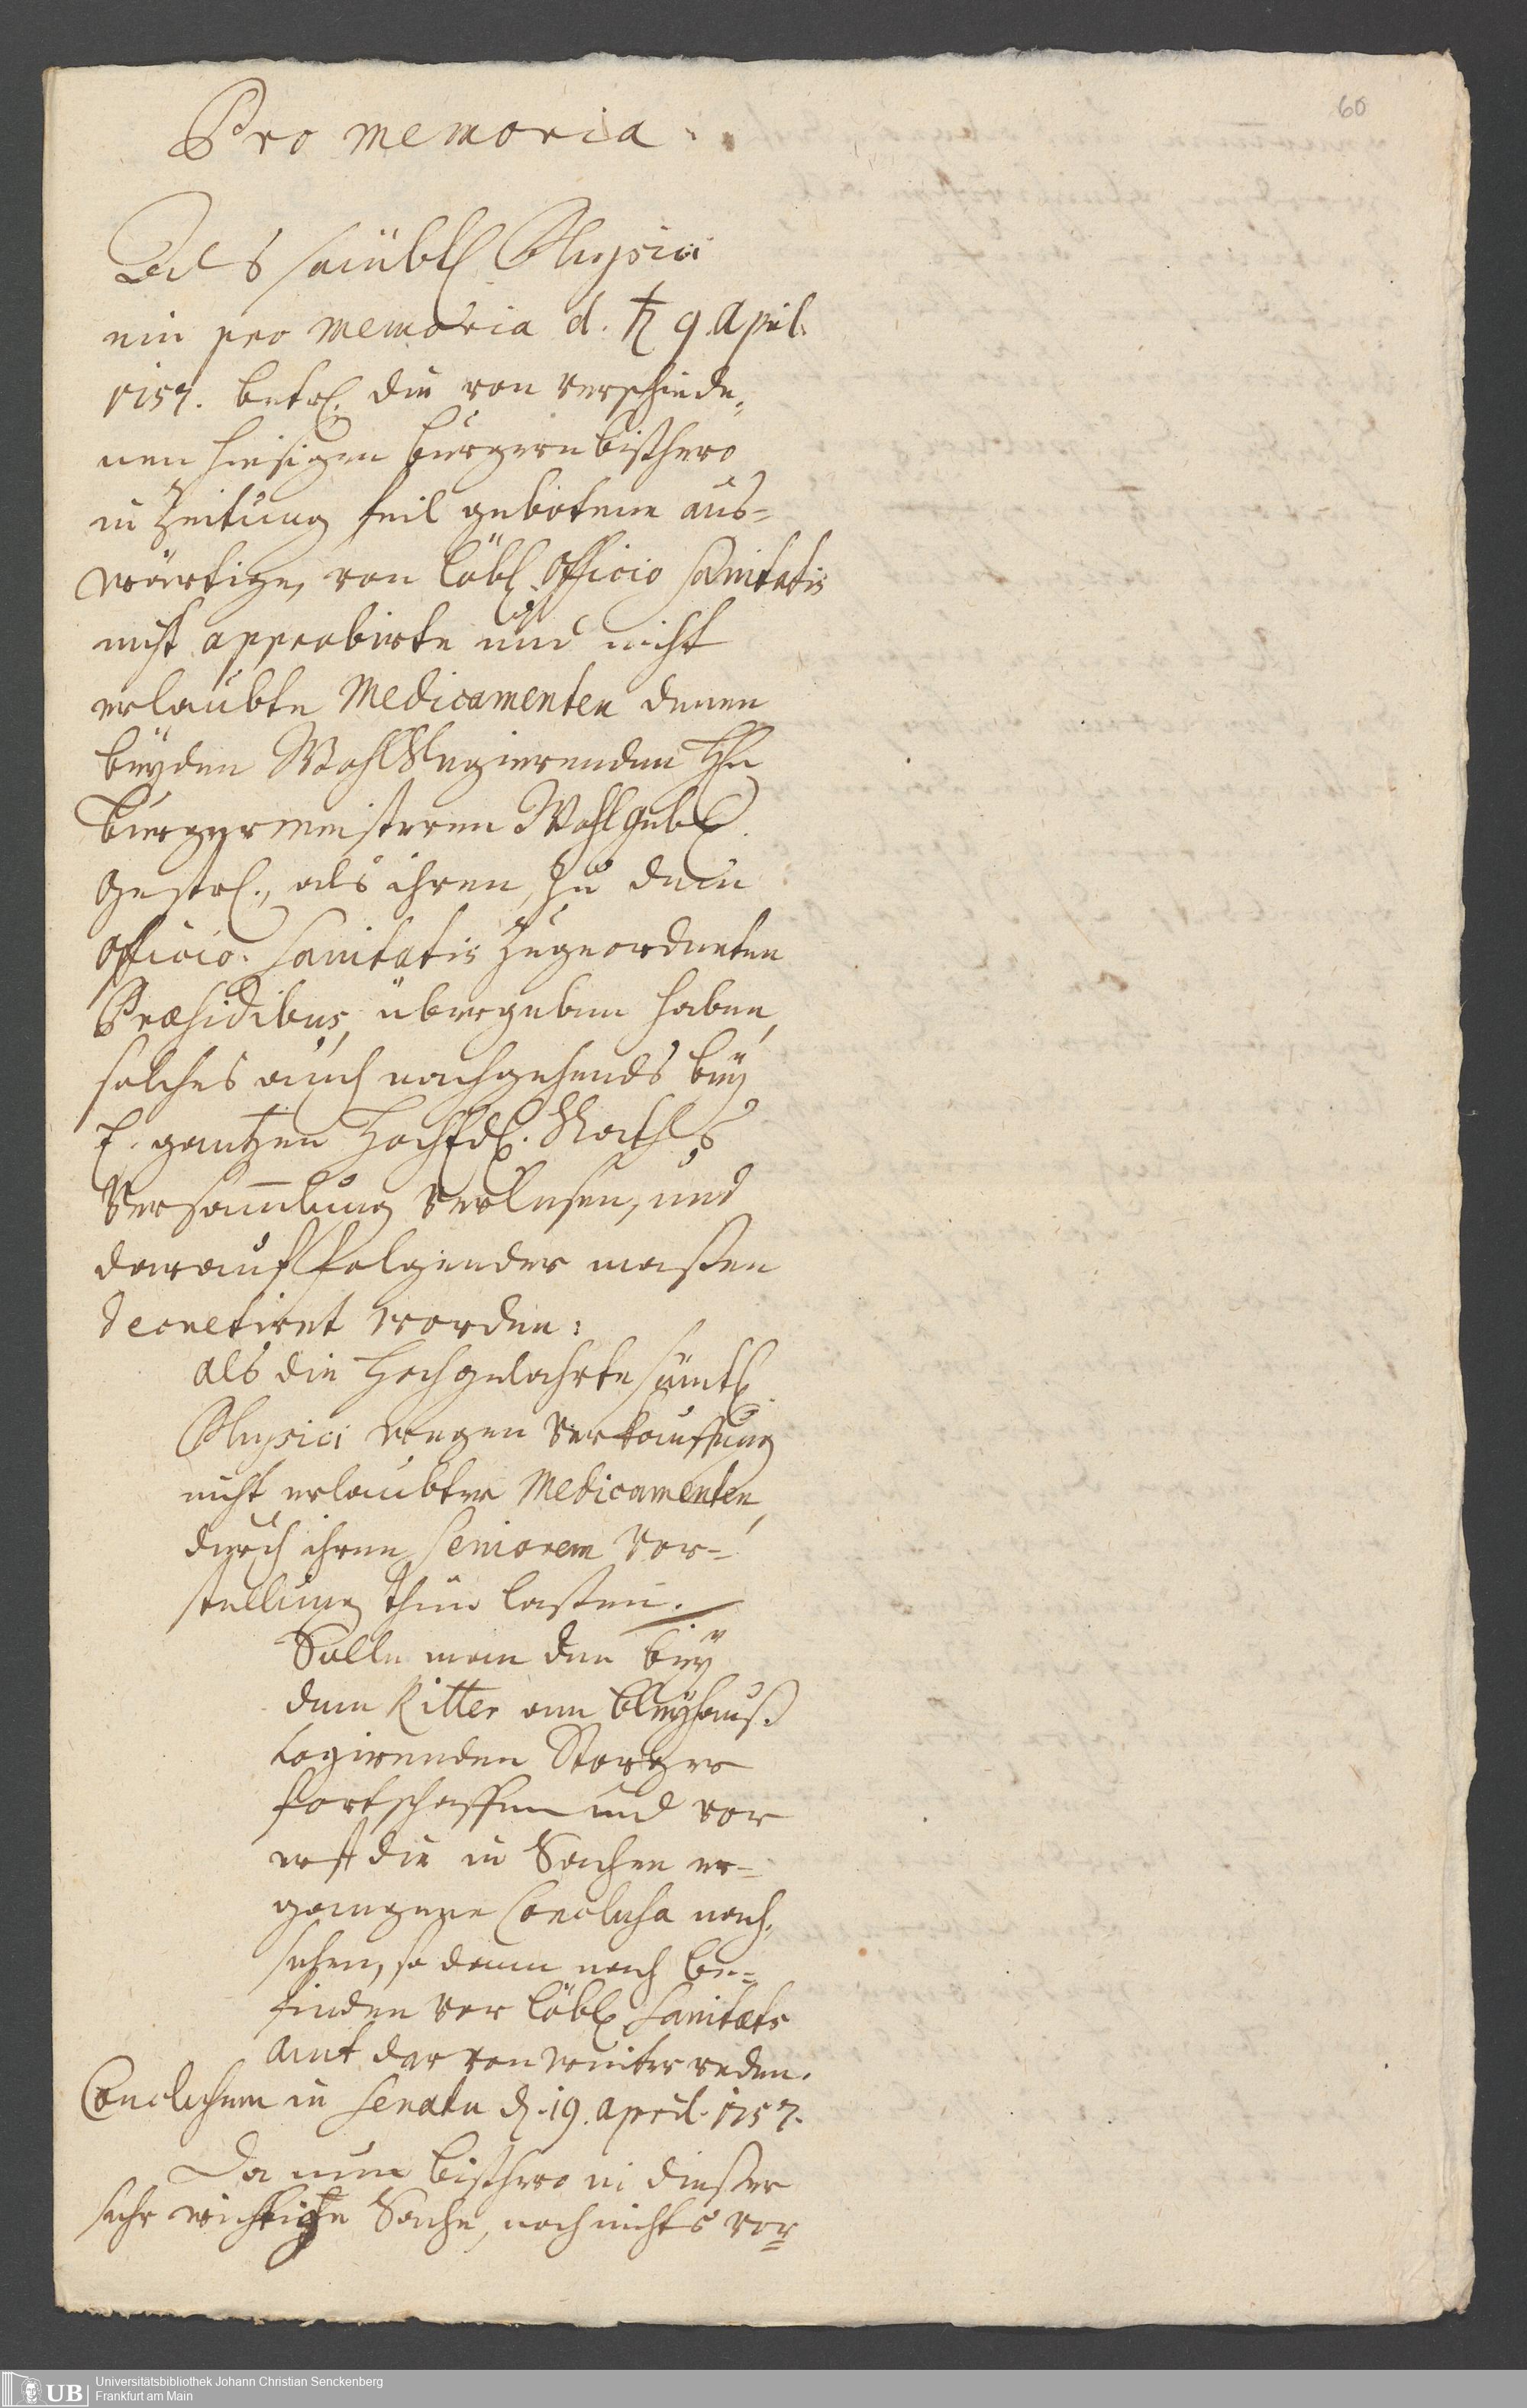 60
Pro Memoria.
Als sämbtl Physici
ein pro Memoria d. ♄ 9. April.
1757. betrl. die von verschiede,
nen hiesigen burgern bißhero
in Zeitung feil gebotene aus=
wärtige, von löbl. Officio Sanitatis
nicht approbirte und nicht
erlaubte Medicamenten denen
beyden WohlRegierenden Hhn
burgermeisteren Wohlgeb.
Gestrl., als ihren, zu dem
Officio Sanitatis zugeordneten
Præsidibus, übergeben haben,
solches auch nachgehends bey
E. gantzen HochEdl. Raths
Versam̄lung verlesen, und
darauf folgender maßen
decretiret worden:
als die Hochgelahrte sämtl.
Physici wegen Verkauffung
nicht erlaubter Medicamenten,
durch ihren Seniorem Vor=
stellung thun laßen.
Solle man den bey
dem Ritter am bleyhauß
logirenden Storger
fortschaffen und vor
erst die in Sachen er=
gangene Conclusa nach,
sehen, so dann nach be=
finden vor löbl. Sanitæts
Amt darvon weiter reden.
Conclusum in Senatu d. 19. April. 1757.
Da nun bißhero in dießer
sehr wichtige Sache, noch nichts vor
Universitätsbibliothek Johann Christian Senckenberg
Frankfurt am Main
UB